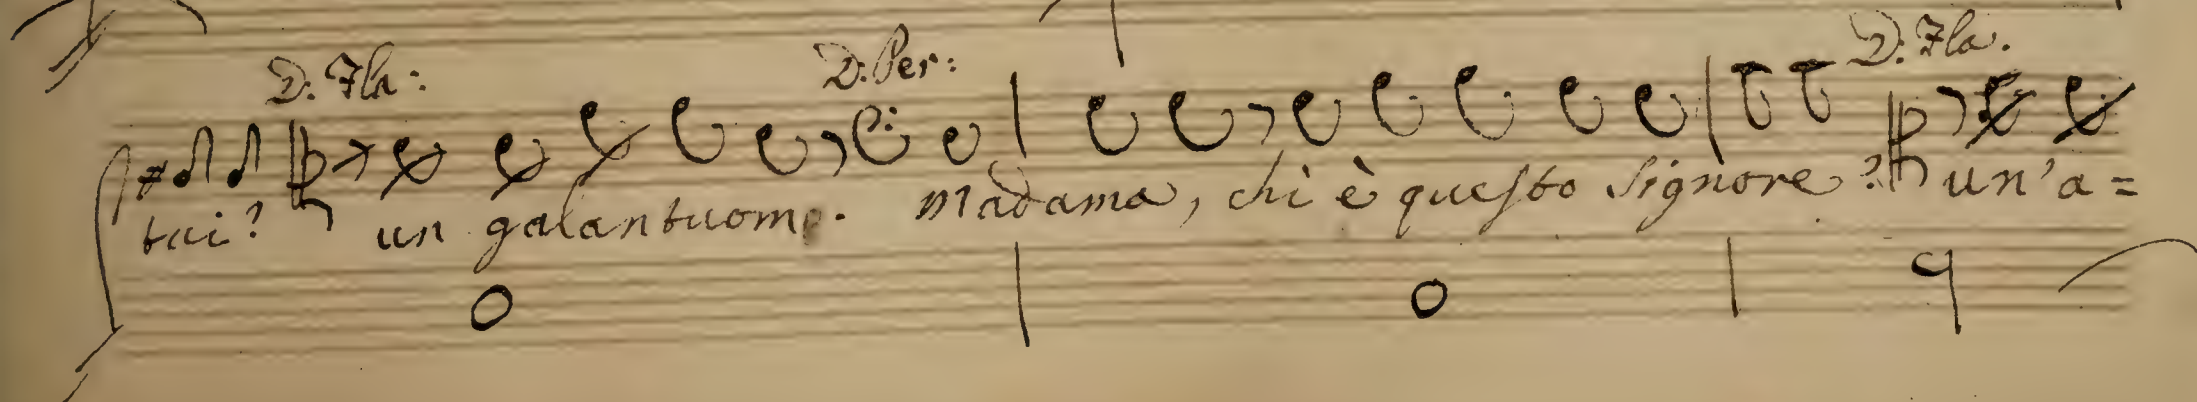 D. Fla: D: Per: D: Fla.
tui? un galantuomo. Madama, chi è questo Signore? un'a=